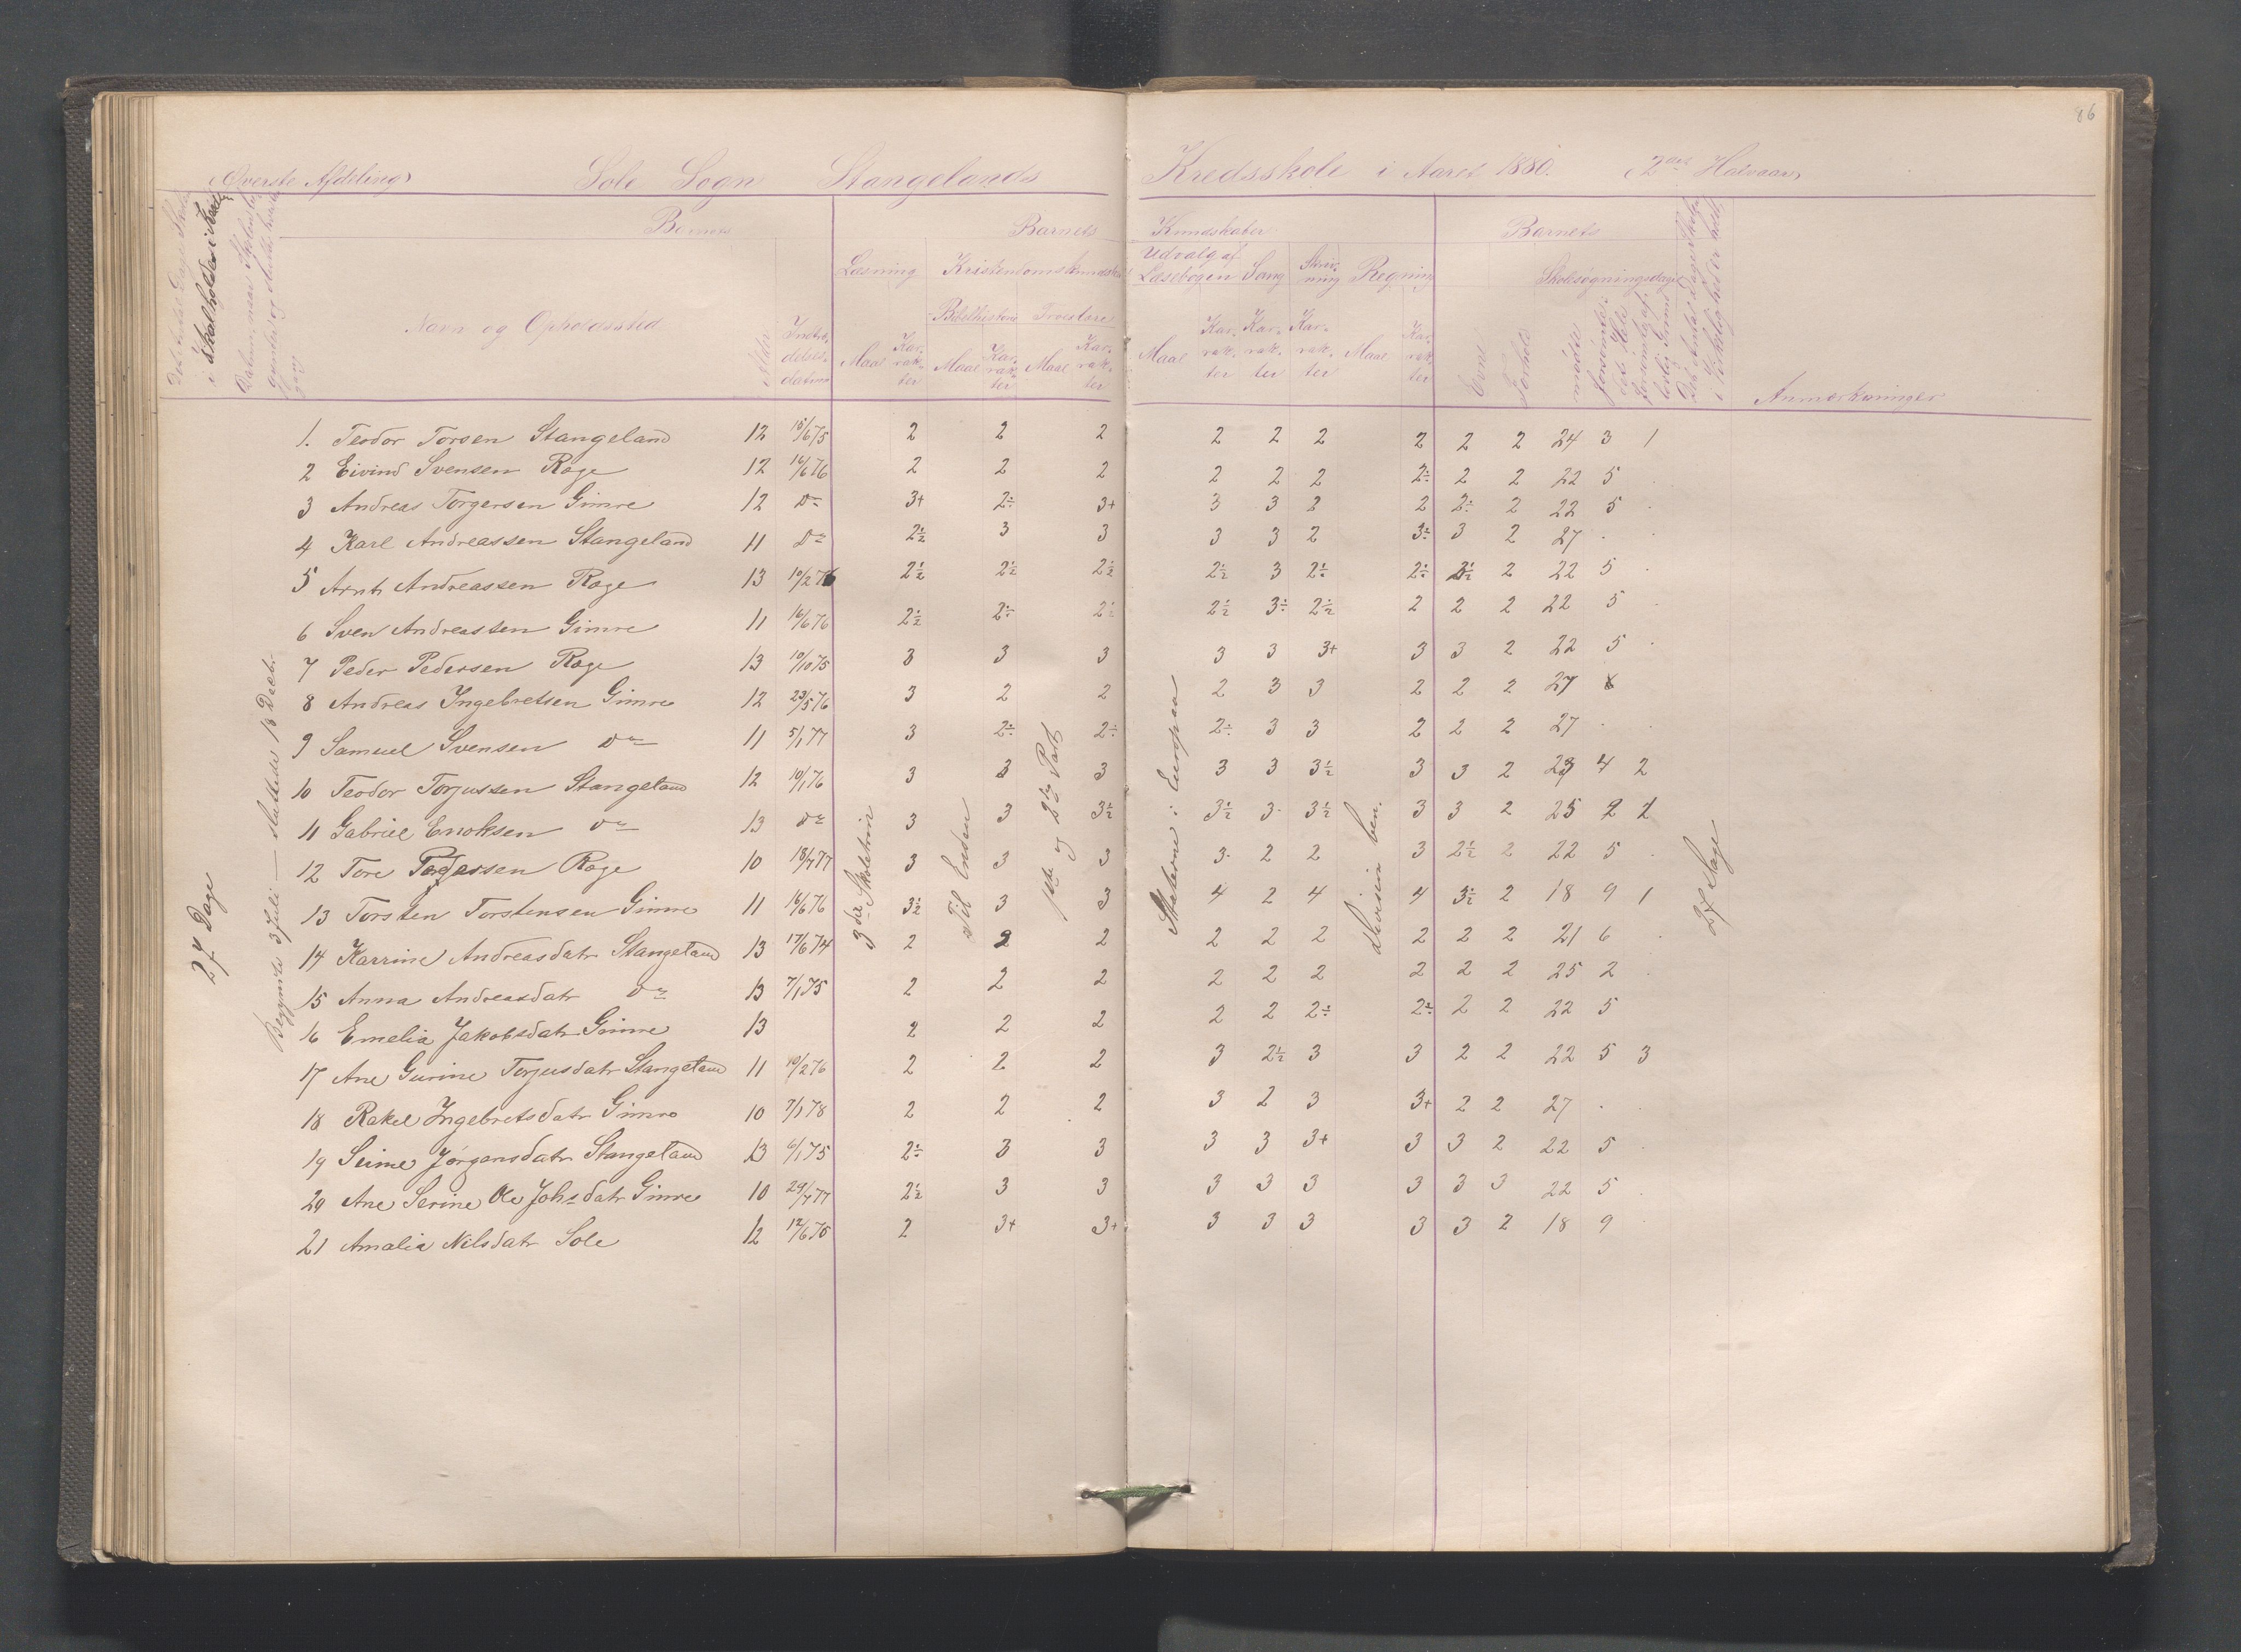 86
(Øverste Afdeling) Sole Sogn Stangelands Kredsskole i Aaret 1880. (2det Halvaar)
Barnets
Barnets Kundskaber
Barnets
Læsning Kristendomskundskab Udvalg af Læsebogen Sang Skrivning Regning
Skolesøgningsdage
Navn og Opholdssted Alder Indtrædelsesdatum
Bibelhistorie Troeslære
Maal Karakter Maal Karakter Maal Karakter Maal Karakter Karakter Karakter Maal Karakter Evne Forhold mødte
Anmærkninger
27 Dage
Begyndte 3 Juli — sluttede 16 Decbr
3die Skoletrin
Til Enden
1ste og 2den Part
Staterne i Europa
Division ben.
27 Dage
1. Teodor Torsen Stangeland 12 15/6 75 2 2 2 2 2 2 2 2 2 24 3 1
2 Eivind Svensen Røge 12 16/6 76 2 2 2 2 2 2 2÷ 2 2 22 5 .
3 Andreas Torgersen Gimre 12 Do 3+ 2÷ 3+ 3 3 2 2 2÷ 2 22 5 .
4 Karl Andreassen Stangeland 11 Do 2½ 3 3 3 3 2 3÷ 3 2 27 . .
5 Arnt Andreassen Røge 13 10/2 76 2½ 2½ 2½ 2½ 3 2½ 2÷ 2½ 2 22 5 .
6 Sven Andreassen Gimre 11 16/6 76 2½ 2÷ 2½ 2½ 3÷ 2½ 2 2 2 22 5 .
7 Peder Pedersen Røge 13 10/10 75 3 3 3 3 3 3+ 3 3 2 22 5 .
8 Andreas Ingebretsen Gimre 12 23/5 76 3 2 2 2 3 3 2 2 2 27
9 Samuel Svensen Do 11 5/1 77 3 2÷ 2÷ 2÷ 3 3 2 2 2 27 . .
10 Teodor Torjussen Stangeland 12 10/1 76 3 3 3 3 3 3½ 3 3 2 23 4 2
11 Gabriel Enoksen Do 13 Do 3 3 3½ 3½ 3 3½ 3 3 2 25 2 2
12 Tore Røge 10 18/7 77 3 3 3 3 2 2 3 2½ 2 22 5 .
13 Torsten Torstensen Gimre 11 16/6 76 3½ 3 3 4 2 4 4 3½ 2 18 9 1
14 Karrine Andreasdatr Stangeland 13 17/6 74 2 2 2 2 2 2 2 2 2 21 6 .
15 Anna Andreasdatr Do 13 7/1 75 2 2 2 2 2 2 2 2 2 25 2 .
16 Emelia Jakobsdatr Gimre 13 2 2 2 2 2 2÷ 2÷ 2 2 22 5
17 Ane Gurine Torjusdatr Stangeland 11 10/2 76 2 2 2 3 2½ 3 3 2 2 22 5 3
18 Rakel Ingebretsdatr Gimre 10 7/1 78 2 2 2 3 2 3 3+ 2 2 27 . .
19 Seime Jørgensdatr Stangeland 13 6/1 75 2÷ 3 3 3 3 3+ 3 3 2 22 5 .
20 Ane Serine Ole Johsdatr Gimre 10 24/7 77 2½ 3 3 3 3 3 3 3 3 22 5 .
21 Amalia Nilsdatr Sole 12 12/6 75 2 3+ 3+ 3 3 3 3 3 2 18 9